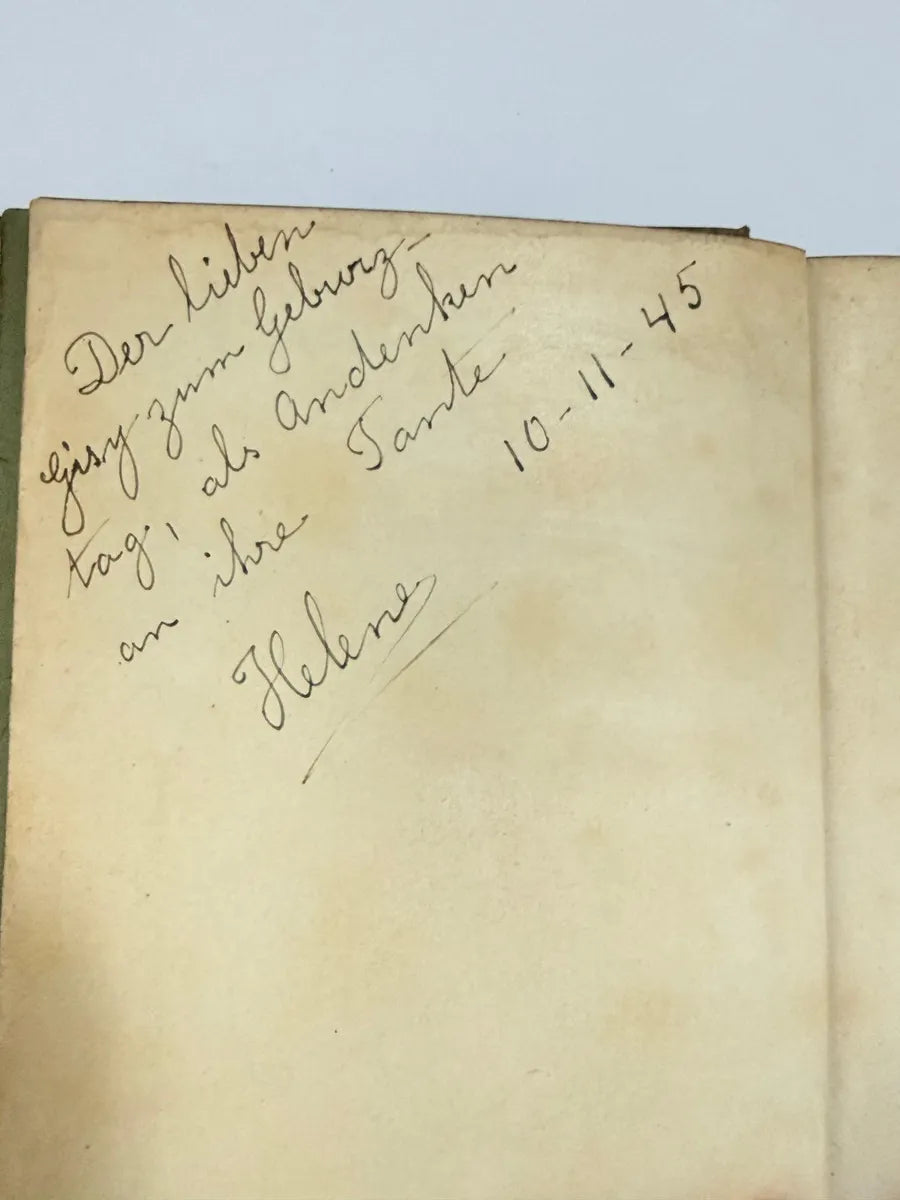 Der lieben
Gisy zum Geburz-
tag, als Andenken
an ihre Tante
Helene
10-11-45